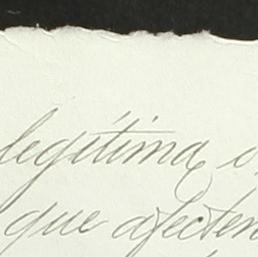 legítima o
que afecten